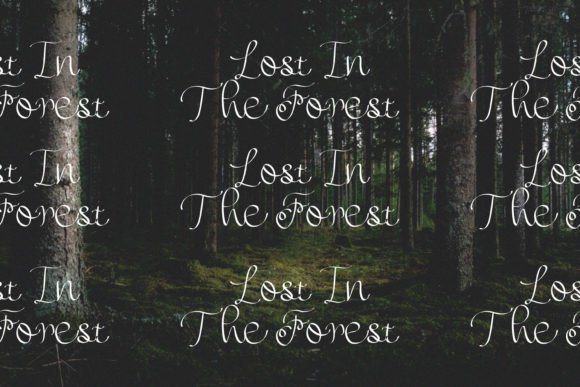 st In Lost In Los
Forest The Forest The F
st In Lost In Los
Forest The Forest The F
st In Lost In Los
Forest The Forest The F